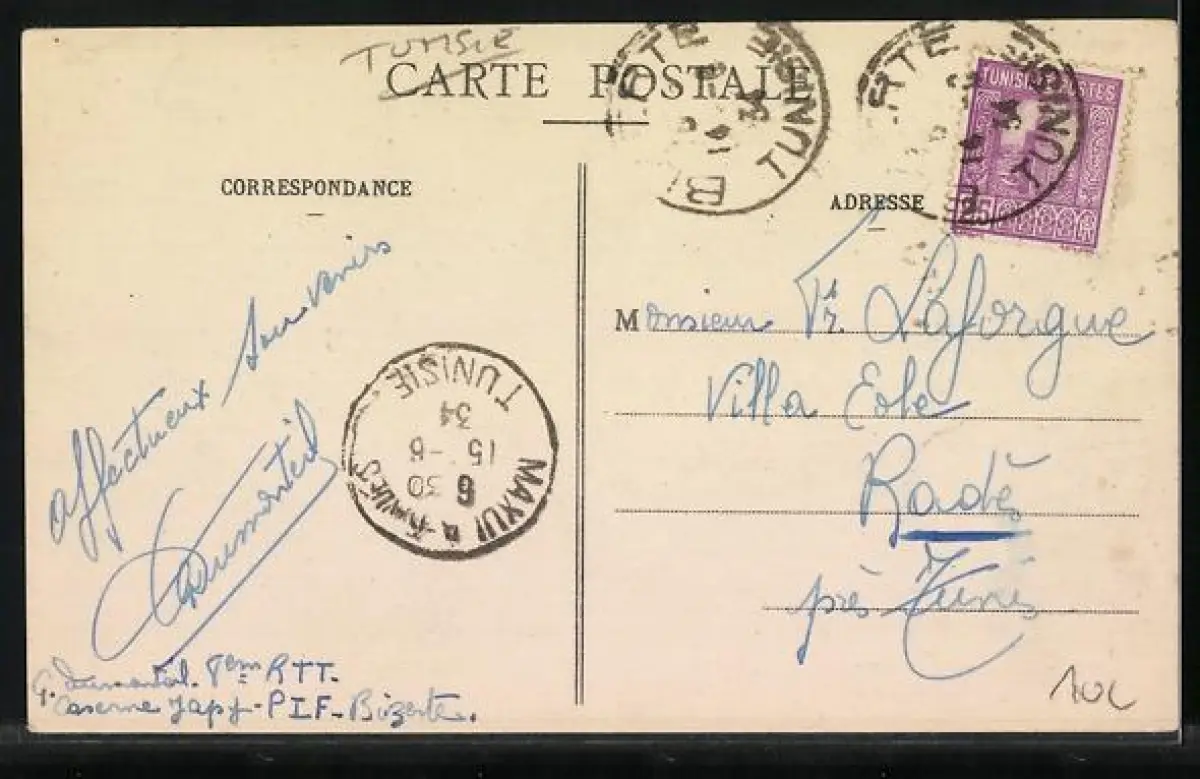 TUNISIE
CARTE POSTALE
CORRESPONDANCE
ADRESSE
TUNISIE POSTES
25
TUNISIE
34
TUNISIE
34
affectueux souvenirs
Dumonteil
G. Dumonteil. 8em RTT.
Caserne Japy - PIF - Bizerte.
TUNISIE
34
15 -6
6 30
MAXULA-RADES
Monsieur Fr. Laforgue
Villa Eole
Radès
près Tunis